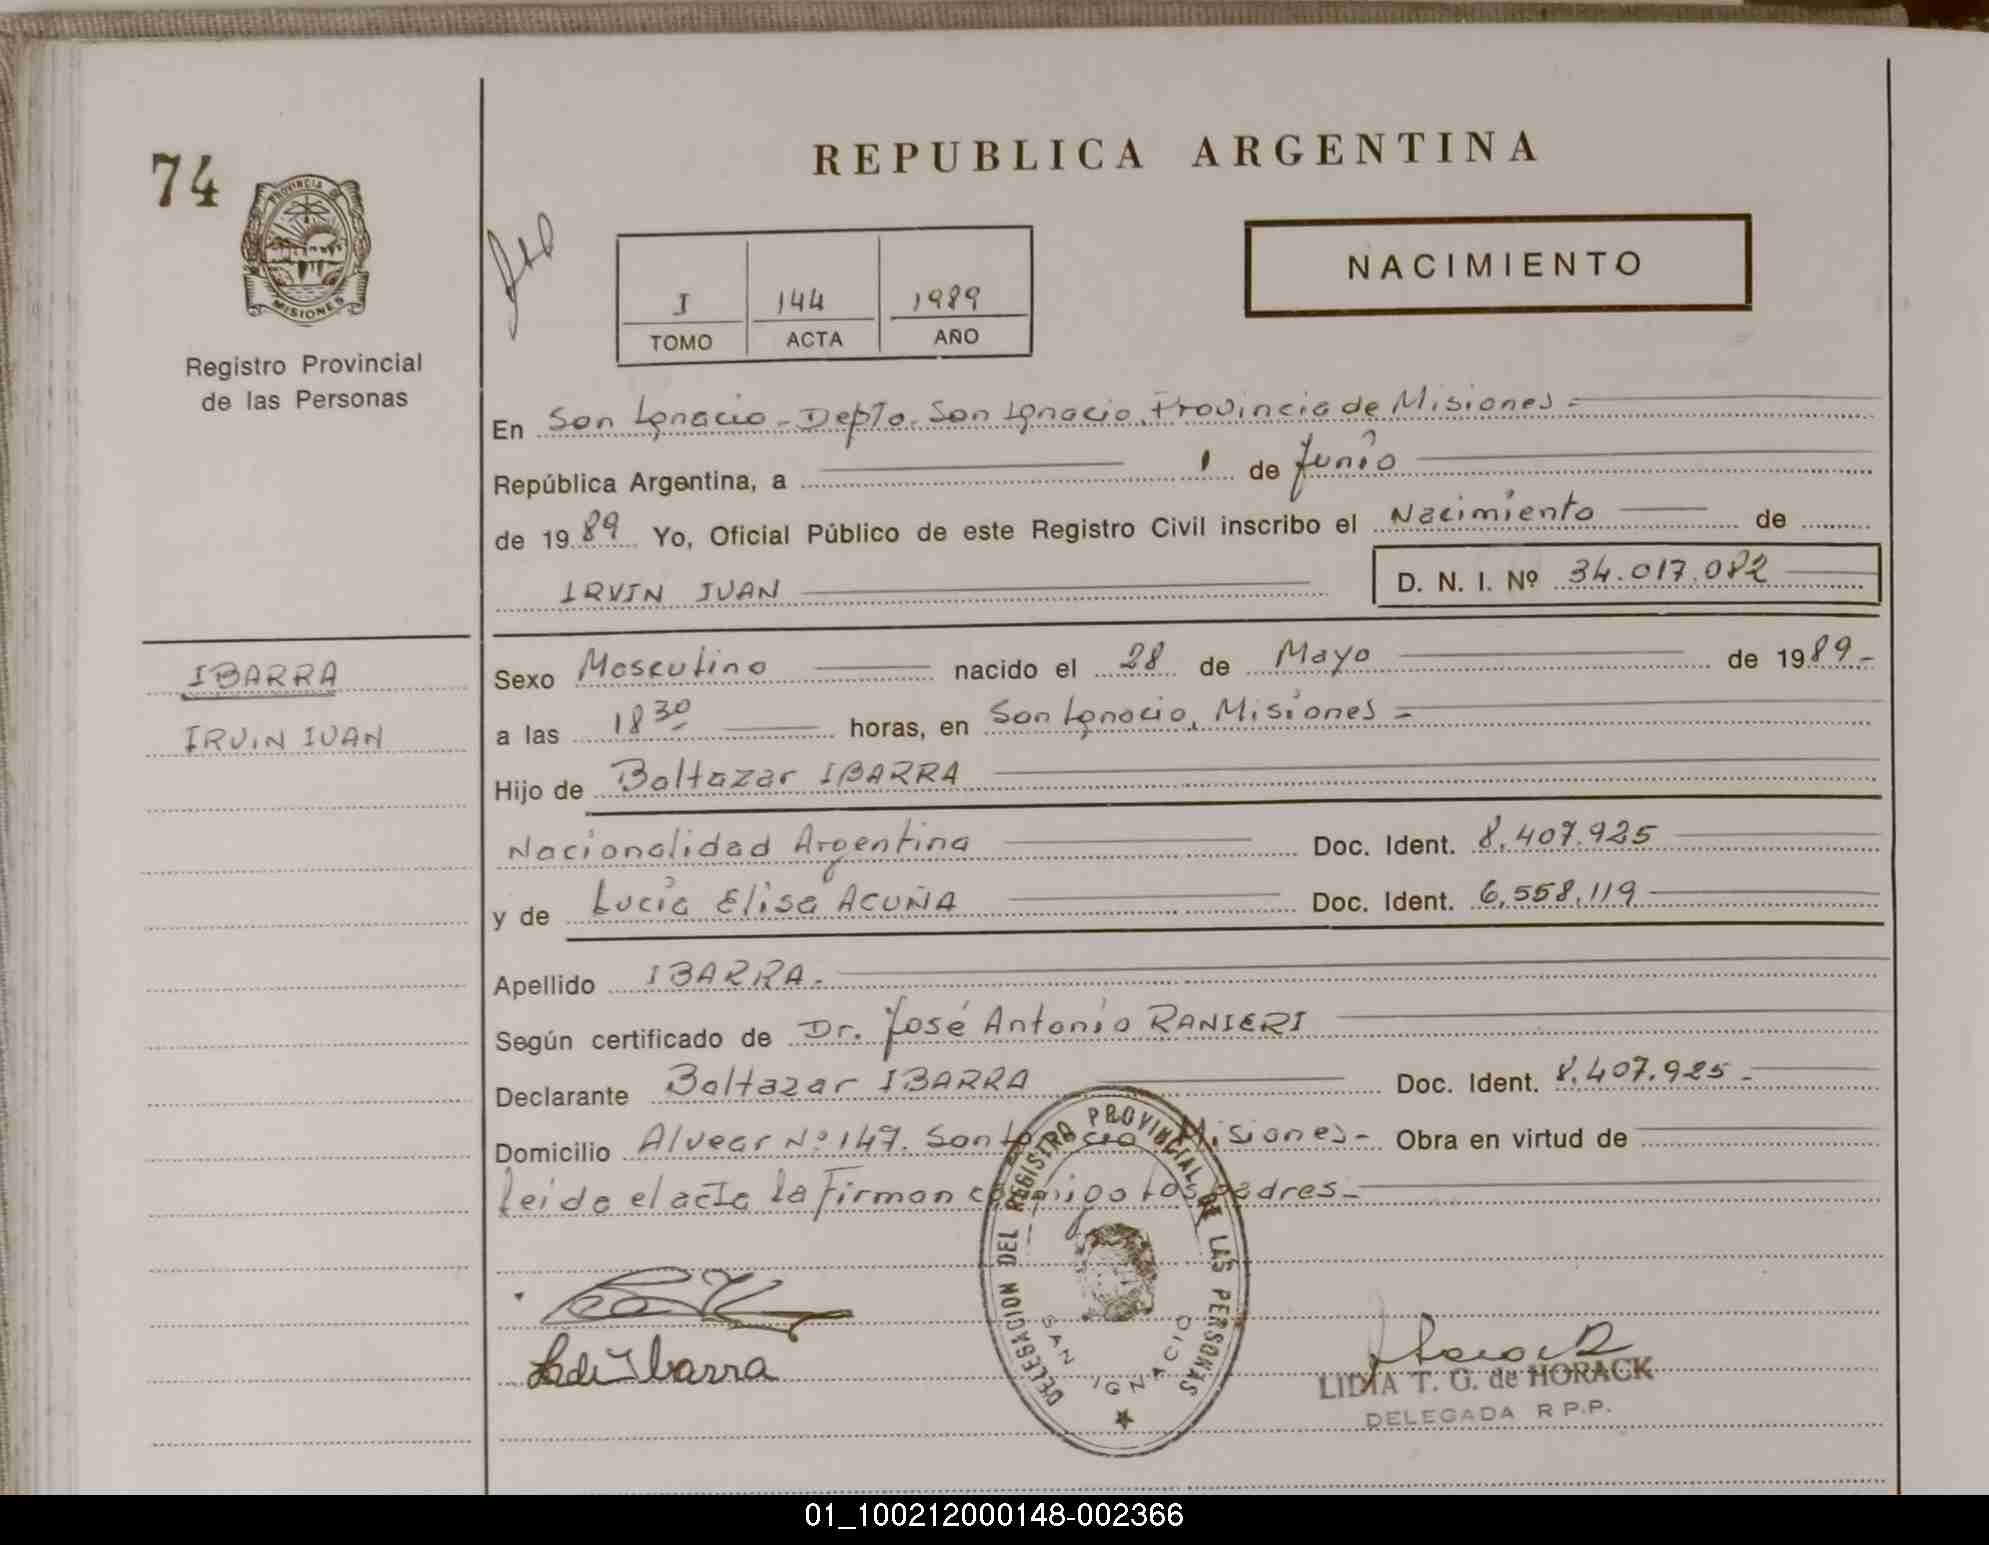 74
PROVINCIA DE
MISIONES
Registro Provincial
de las Personas
IBARRA
IRVIN IVAN
REPUBLICA ARGENTINA
NACIMIENTO
I 144 1989
TOMO ACTA AÑO
En San Ignacio - Depto. San Ignacio, Provincia de Misiones =
República Argentina, a 1 de Junio
de 1989 Yo, Oficial Público de este Registro Civil inscribo el Nacimiento de
IRVIN IVAN D. N. I. Nº 34.017.082
Sexo Masculino nacido el 28 de Mayo de 1989.-
a las 18 30 horas, en San Ignacio, Misiones =
Hijo de Baltazar IBARRA
Nacionalidad Argentina Doc. Ident. 8.407.925
y de Lucía Elisa ACUÑA Doc. Ident. 6.558.119
Apellido IBARRA.
Según certificado de Dr. José Antonio RANIERI
Declarante Baltazar IBARRA Doc. Ident. 8.407.925.-
Domicilio Alvear Nº 147. San Ignacio Misiones- Obra en virtud de
leida el acta la Firman conmigo los padres-
DELEGACION DEL REGISTRO PROVINCIAL DE LAS PERSONAS
SAN IGNACIO
Ibarra
LIDIA T. G. de HORACK
DELEGADA R P.P.
01_100212000148-002366